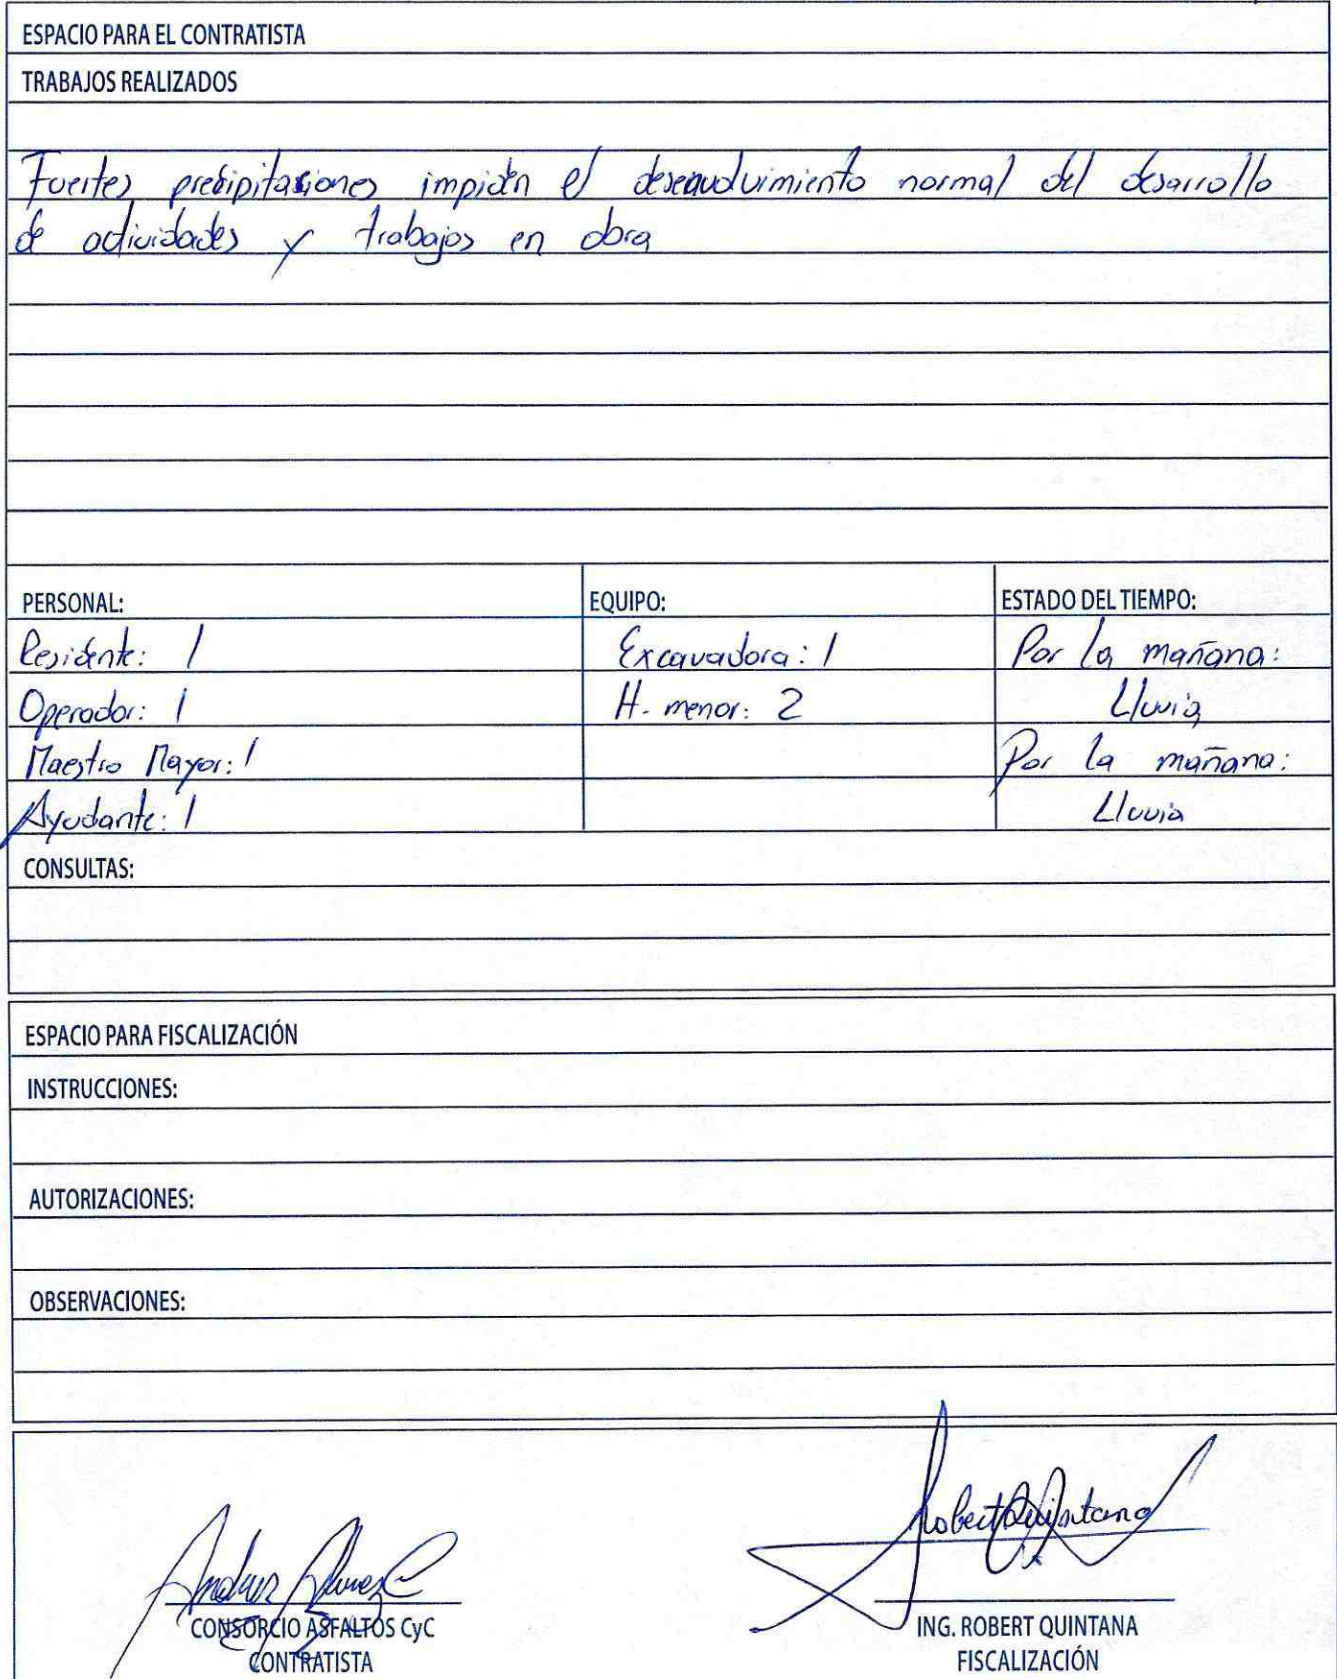 ESPACIO PARA EL CONTRATISTA
TRABAJOS REALIZADOS
Fuertes precipitasiones impiden el desenvolvimiento normal del desarrollo
de actividades y trabajos en obra
PERSONAL: EQUIPO: ESTADO DEL TIEMPO:
Residente: 1 Excavadora: 1 Por la mañana:
Operador: 1 H. menor: 2 Lluvia
Maestro Mayor: 1 Por la mañana:
Ayudante: 1 Lluvia
CONSULTAS:
ESPACIO PARA FISCALIZACIÓN
INSTRUCCIONES:
AUTORIZACIONES:
OBSERVACIONES:
Robert Quintana
CONSORCIO ASFALTOS CyC ING. ROBERT QUINTANA
CONTRATISTA FISCALIZACIÓN